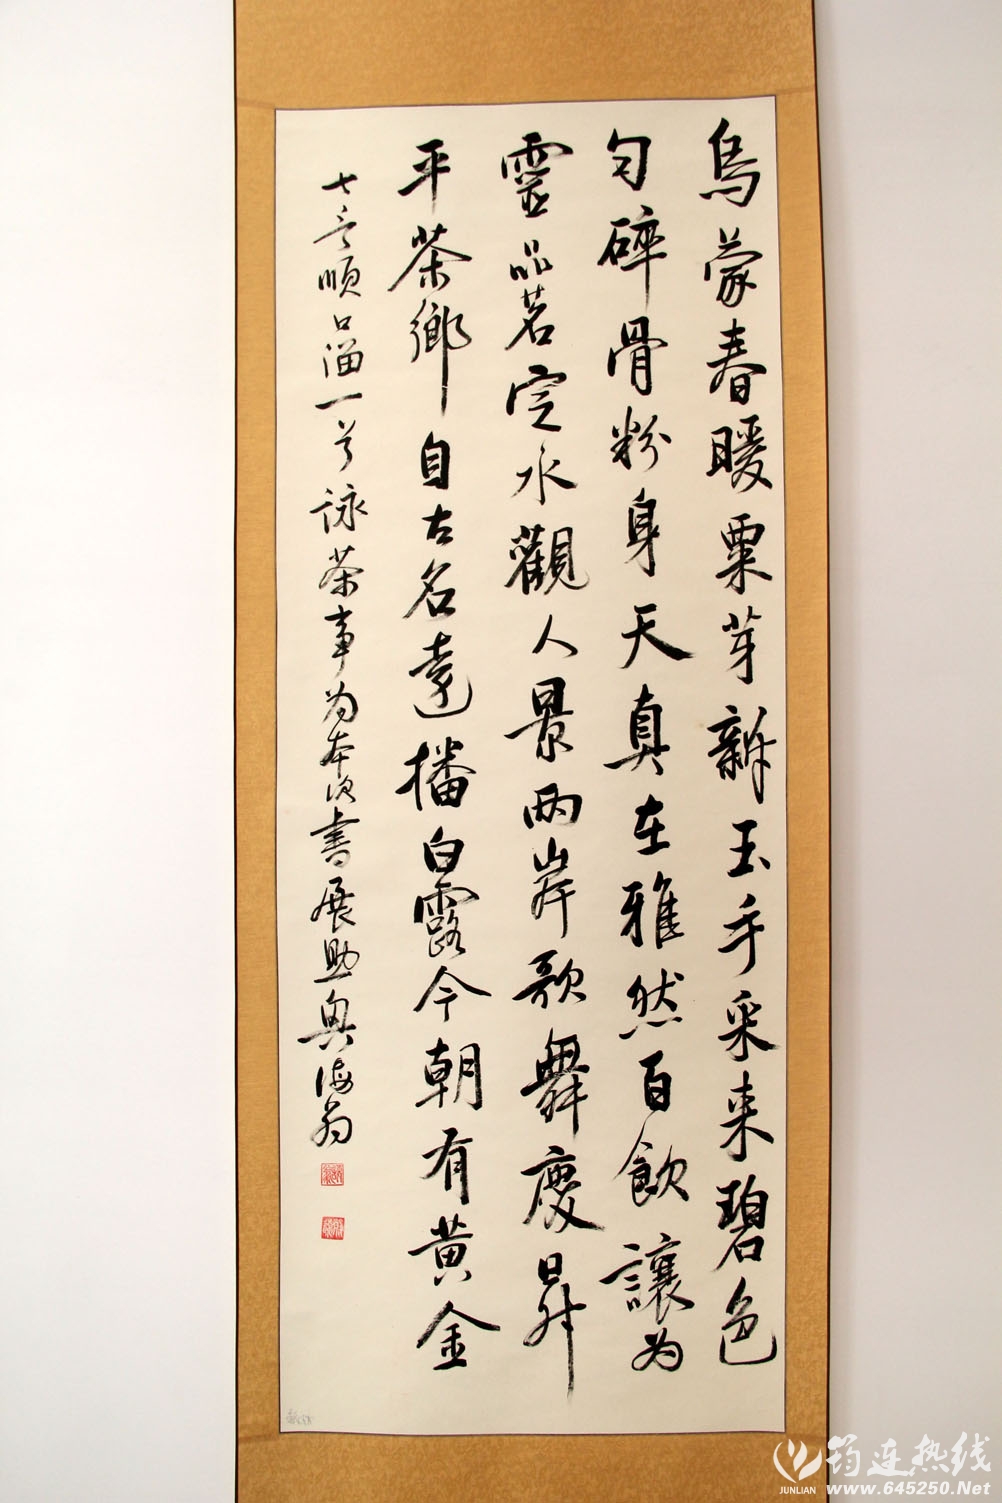 烏蒙春暖粟芽新玉手采来碧色
勻碎骨粉身天真在雅然百飲讓为
靈品茗定水觀人景两岸歌舞慶昇
平茶鄉自古名遠播白露今朝有黄金
七言順口溜一首詠茶事为本次書展助興海翁
筠连热线
JUNLIAN www.645250.Net